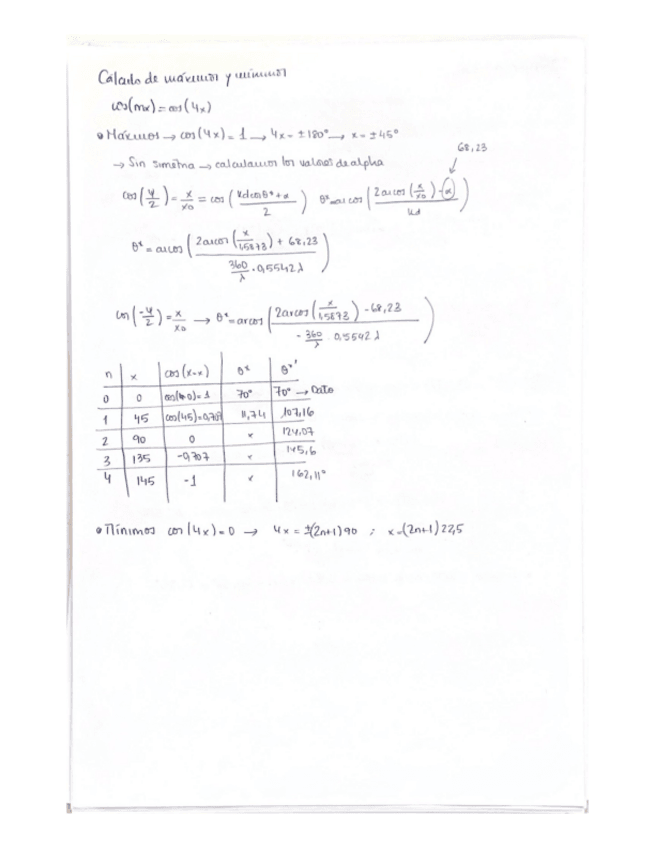 Cálculo de máximos y mínimos
cos(mx) = cos(4x)
• Máximos → cos(4x) = 1 → 4x = ±180° → x = ±45°
→ Sin simetría → calculamos los valores de alpha
68,23
cos(ψ/2) = x/x0 = cos((kdcosθ*+α)/2) θ* = arcos((2arcos(x/x0) - α)/kd)
θ* = arcos((2arcos(x/1,5873) + 68,23)/(360/λ · 0,5542λ))
cos(-ψ/2) = x/x0 → θ* = arcos((2arcos(x/1,5873) - 68,23)/(-360/λ · 0,5542λ))
n x cos(x-x) θ* θ*'
0 0 cos(4·0)=1 70° 70° → Dato
1 45 cos(45)=0,707 11,74 107,16
2 90 0 x 124,07
3 135 -0,707 x 145,6
4 145 -1 x 162,11°
• Mínimos cos(4x) = 0 → 4x = ±(2n+1)90 ; x = (2n+1)22,5